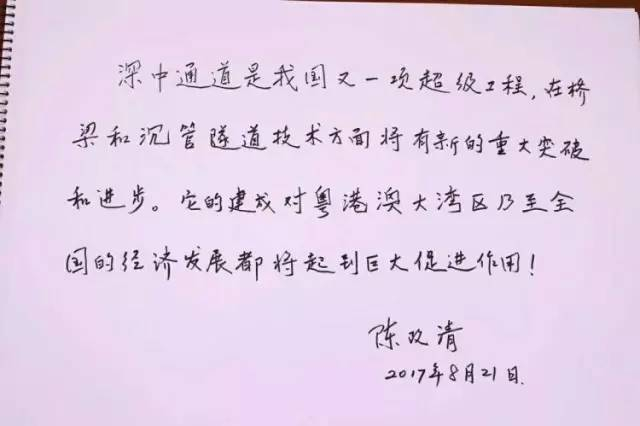 深中通道是我国又一项超级工程，在桥
梁和沉管隧道技术方面将有新的重大突破
和进步。它的建成对粤港澳大湾区乃至全
国的经济发展都将起到巨大促进作用！
陈政清
2017年8月21日.